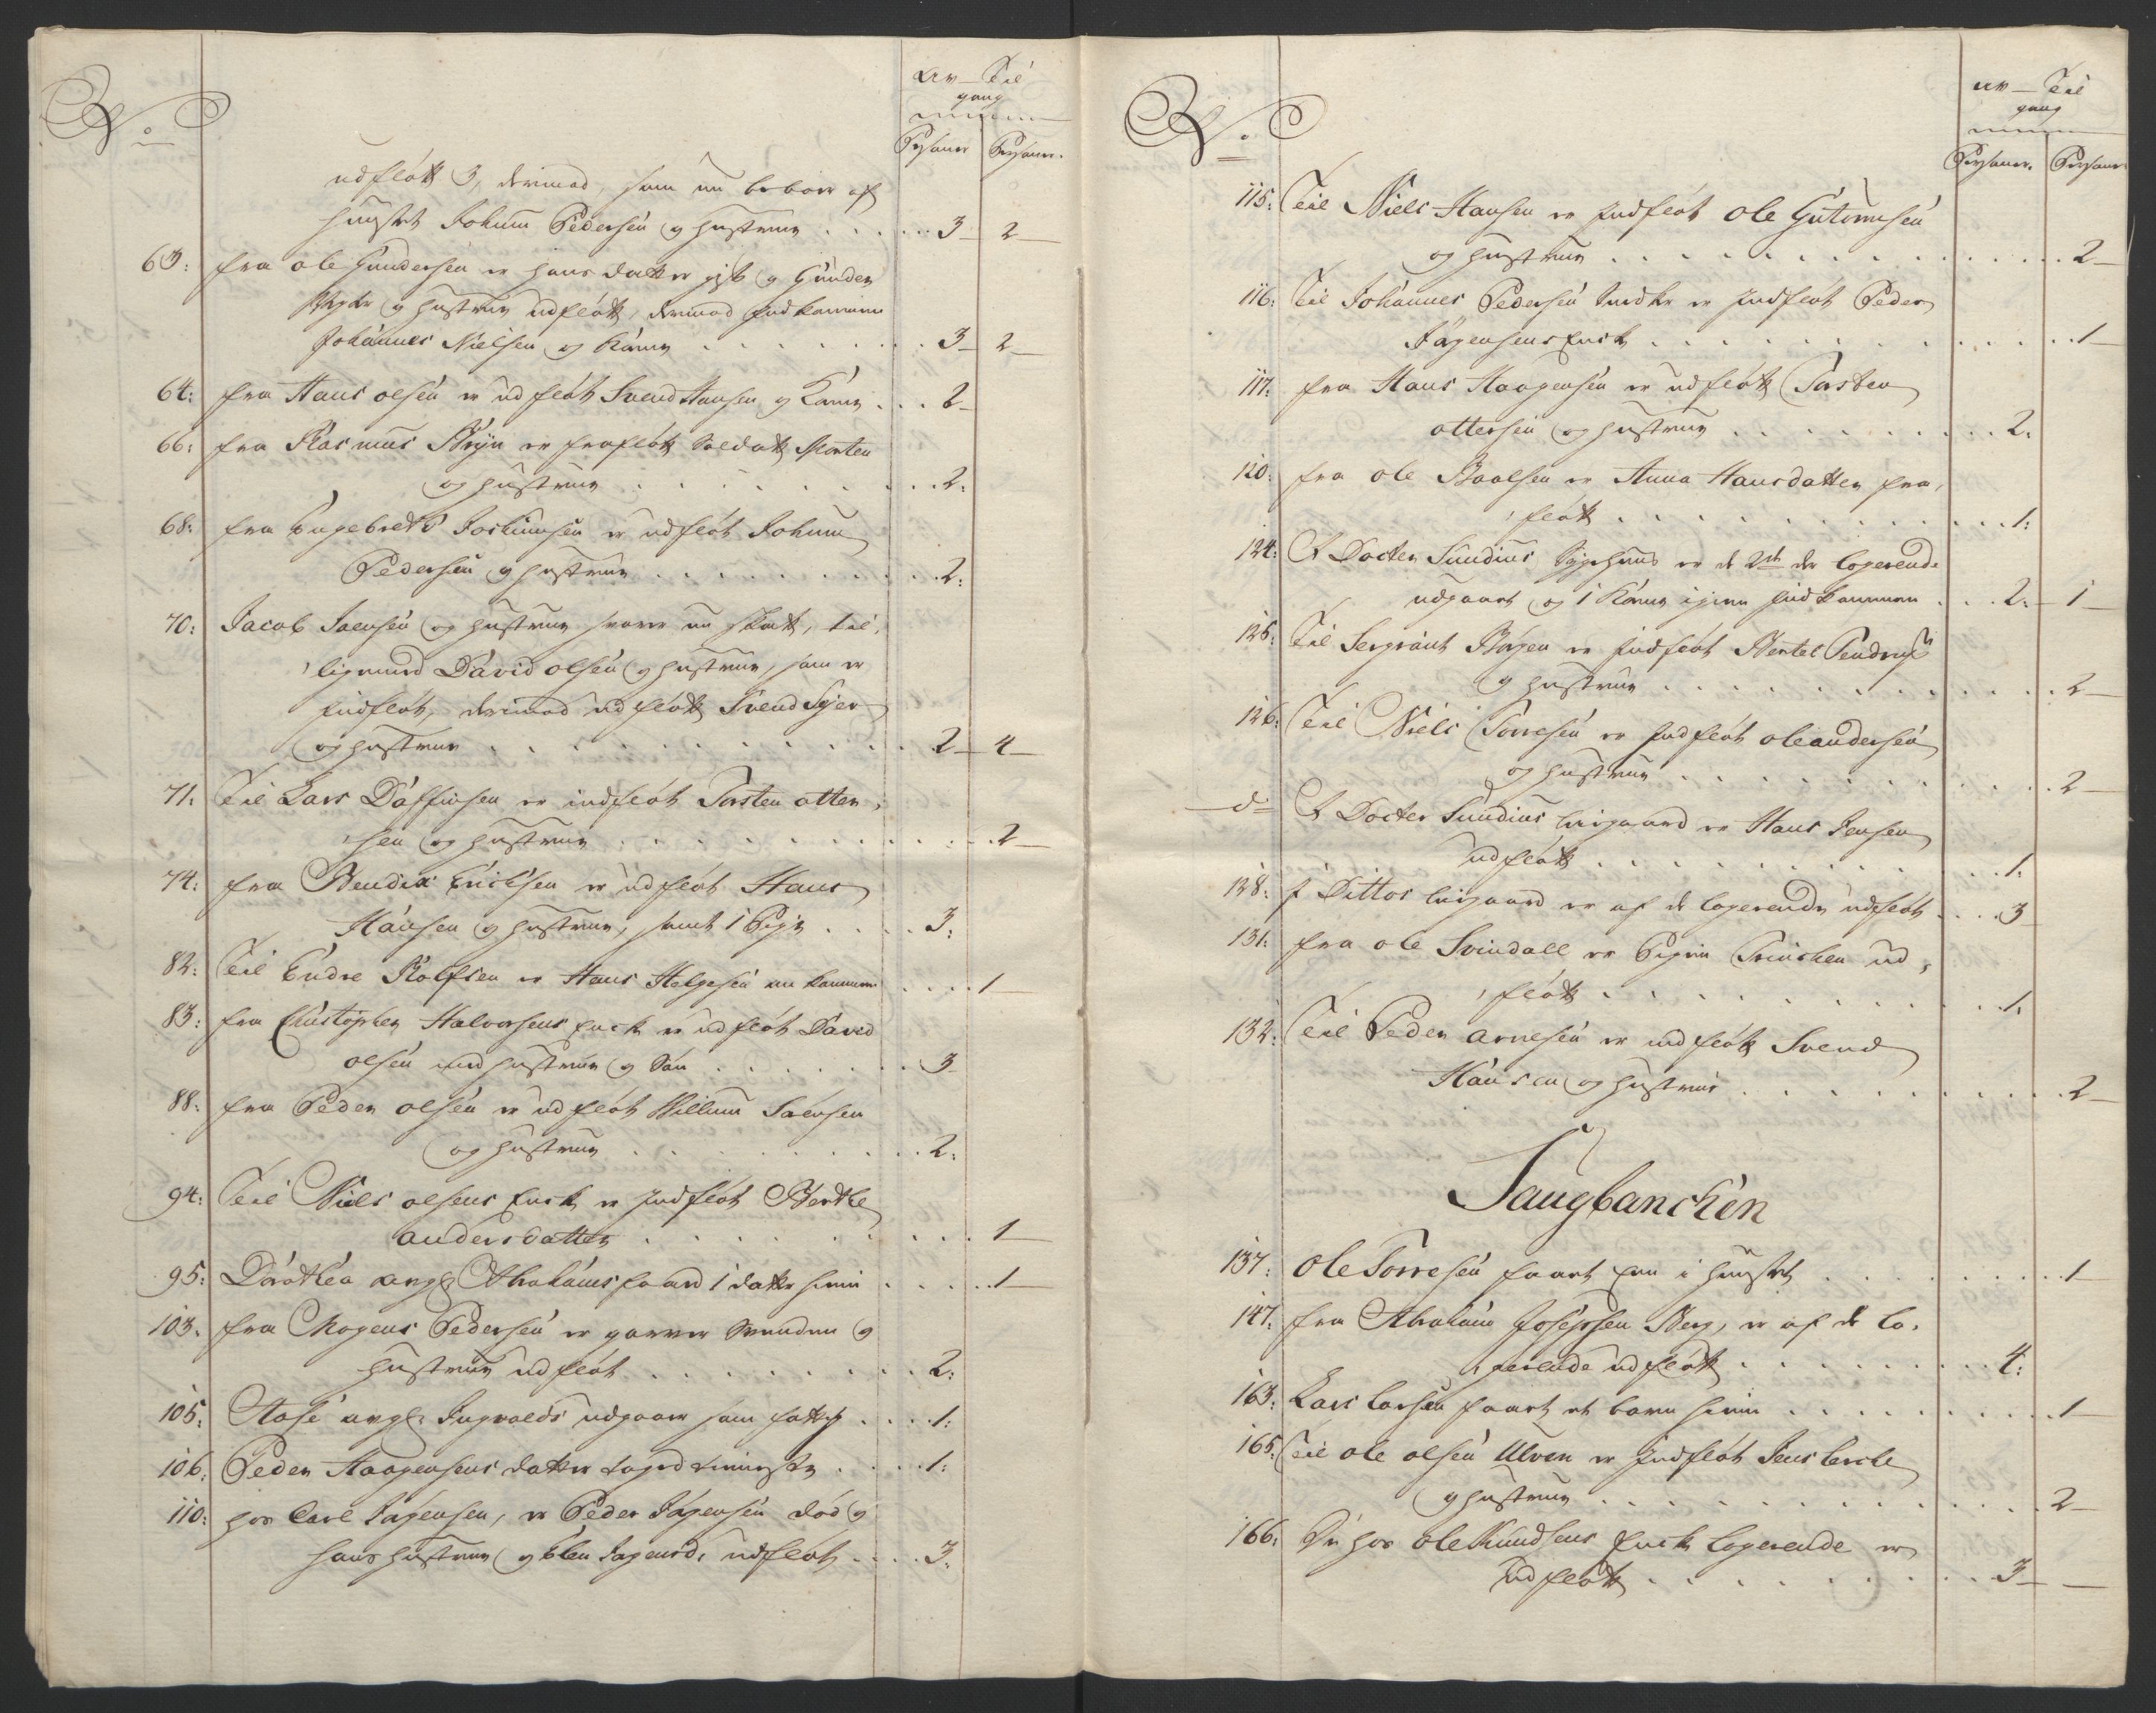 No
Av — Til
gang
Persohner Persohner.
udfløtt 3, derimod, som nu beboer af
huuset Johum Pedersen og hustrue . . . . . 3 — 2 —
63: fra Ole Gundersen er hans datter gift og Gunder
og hustrue udfløtt, derimod indkommen
Johannes Nielsen og Kone . . . . . . . 3 — 2 —
64: fra Hans Olsen er udfløt Svend Hansen og Kone . . . 2 —
66: fra Rasmus Bryn er frafløtt Soldat Morten
og hustrue . . . . . . . . 2:
68: fra Engebret Jochumsen er udfløt Johum
Pedersen og hustrue . . . . . . . . 2:
70: Jacob Saensen og hustrue svarer nu skatt, til,
ligemed David Olsen og hustrue, som er
indfløt, derimod udfløtt Svend
og hustrue . . . . . . . . . . . 2 — 4 —
71: Til Lars Daffinsen er indfløt Torsten Otter,
sen og hustrue . . . . . . . . . . 2 —
74: fra Bendix Erichsen er udfløt Hans
Hansen og hustrue, samt 1 Pige . . . . 3:
82: Til Endre Rolfsen er Hans Helgesen an kommen . . . . 1 —
83: fra Christopher Halvorsens Enck er udfløt David
Olsen med hustrue og Søn . . . . . . . 3
88: fra Peder Olsen er udfløt Willum Saensen
og hustrue . . . . . . . . . 2:
94: Til Niels Olsens Enck er indfløt Berthe
Andersdatter . . . . . . . . . 1 —
95: Dorothea Abrahams faaed 1 datter hiem . . . . . 1 —
103. fra Mogens Pedersen er garver Svenden og
hustrue udfløt . . . . . . . . 2:
105: Aase Ingvalds udgaaer som fattig . . . . 1:
106: Peder Haagensens datter taged tieniste . . . . 1:
110: hos Carl Jøgensen, er Peder Jøgensen død og
hans hustrue og Elen Jøgensd. udfløt . . . . 3:
No
Av — Til
gang
Persohner. Persohner
115: Til Niels Hansen er indfløt Ole Gutormsen
og hustrue . . . . . . . . . . . . . . 2 —
116: Til Johannes Pedersen er indfløt Peder
Jøgensens Enck . . . . . . . . . . . . . 1 —
117: fra Hans Haagensen er udfløtt Torsten
Ottersen og hustrue . . . . . . . . . . 2:
120: fra Ole Baalsen er Anna Hansdatter fra,
fløtt . . . . . . . . . . . . 1:
124: I Docter Sundius Sygehuus er de 2de der logerende
udgaaet og 1 Kone igien indkommen . . . 2: — 1 —
125: Til Sergeant Børgen er indfløt Bertel
og hustrue . . . . . . . . . . . . 2 —
126: Til Niels Torresen er indfløt Ole Andersen
og hustrue . . . . . . . . . . . 2 —
— do I Docter Sundius leigaard er Hans Jensen
udfløtt . . . . . . . . . . . 1:
128: I Dittos leigaard er af de logerende udfløt . . . 3
131: fra Ole Svindall er Pigen Trinchen ud,
fløtt . . . . . . . . . . . 1:
132: Til Peder Arnesen er indfløtt Svend
Hansen og hustrue . . . . . . . . . . . 2 —
Saugbanchen
137: Ole Torresen faaet Een i huuset . . . . . . . . . 1 —
147: fra Abraham Josephsen Berg, er af de lo,
gerende udfløtt . . . . . . . . . 4:
163: Lars Larsen faaet et barn hiem . . . . . . . . . . 1 —
165: Til Ole Olsen Ulven er indfløt Jens Lerche
og hustrue . . . . . . . . . . . . . 2 —
166: De hos Ole Knudsens Enck logerende er
udfløtt . . . . . . . . . . 3 — —